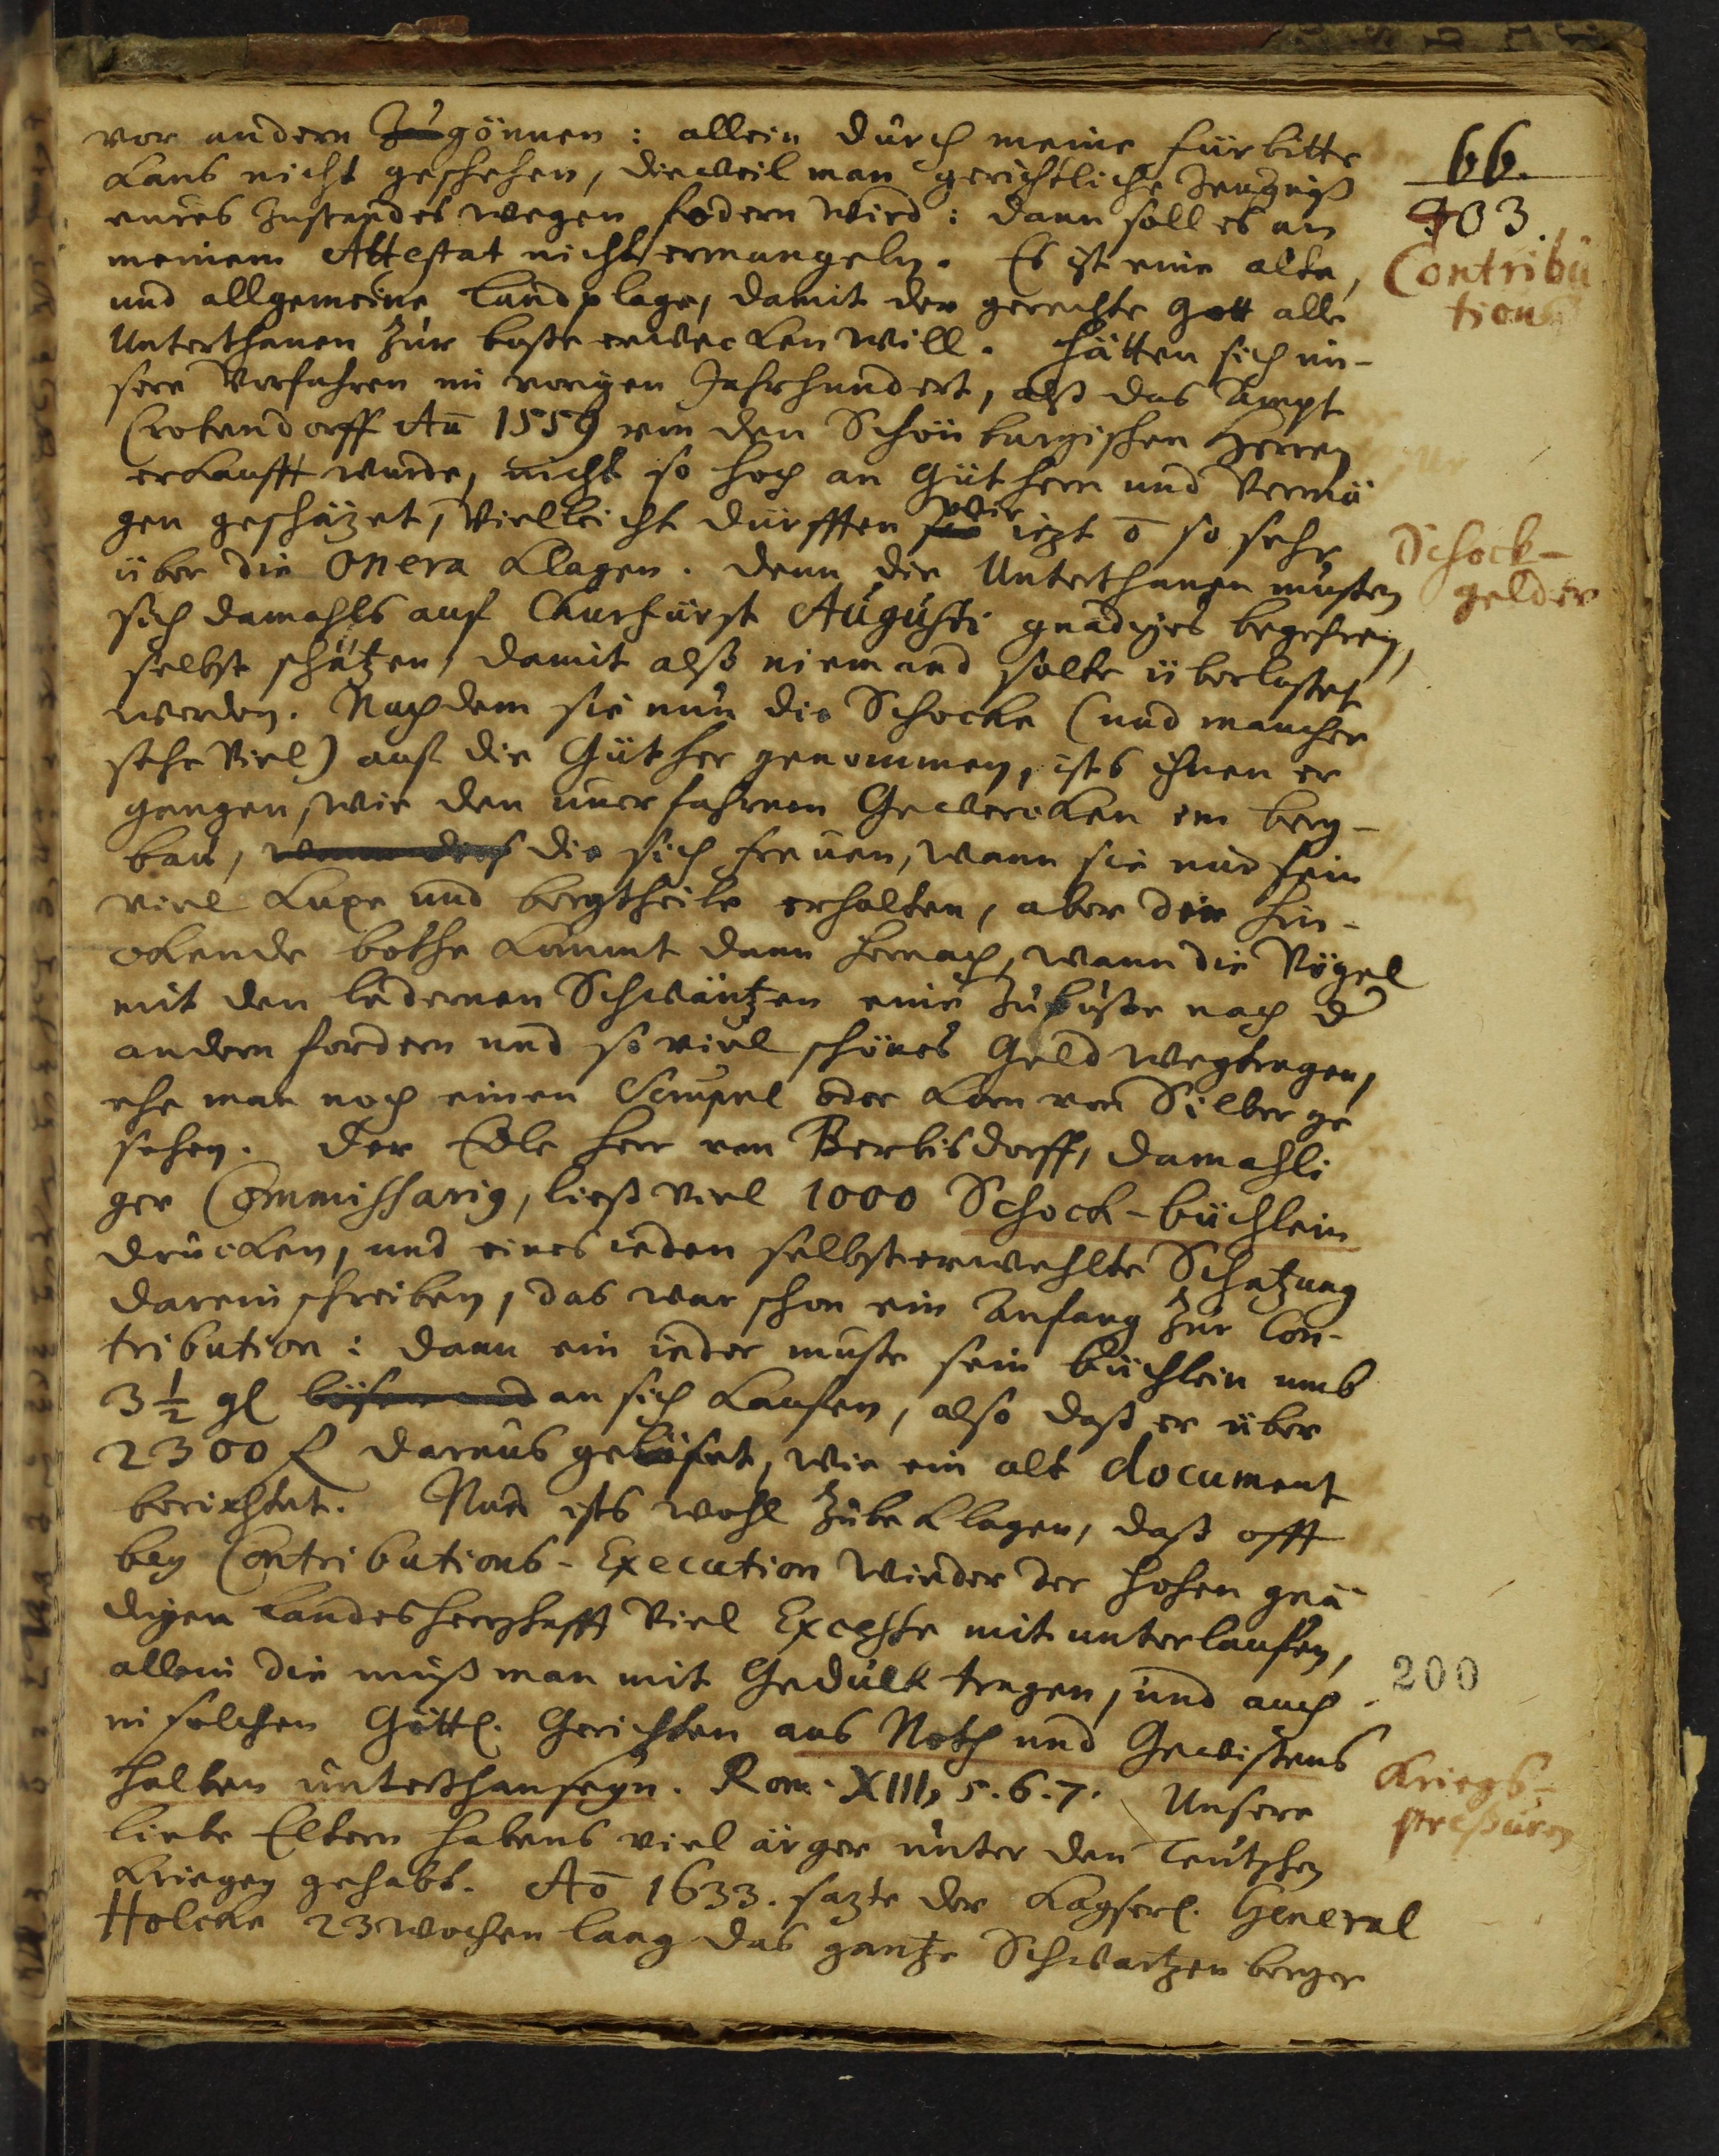 66.
903.
vor andern Zu gönnen: allein durch meine fürbitte
kans nicht geschehen, dieweil man gerichtliche Zeugniß
eures Zustandes wegen fodern wird: dann soll es an
meinem Attestat nicht ermangeln. Es ist eine alte,
und allgemeine Landplage, damit der gerechte Gott alle
Unterthanen zur buße erwecken will. Hätten sich un-
sere Vorfahren im vorigen Jahrhundert, alß das Ampt
Crotendorff Aō 1559 von den Schönburgischen Herren
erkaufft wurde, nicht so hoch an Güthern und Vermö
gen geschäzet, Vielleicht dürfften wir iezt ō so sehr
über die Onera klagen. Denn die Unterthanen musten
sich damahls auf Churfürst Augusti gnädiges begehren,
selbst schätzen, damit alß niemand solte überlastet
werden. Nachdem sie nun die Schocke (und mancher
sehr Viel) auf die Güther genommen, ists ihnen er
gangen, wie den unerfahrnen Gewercken im berg-
bau, die sich freuen, wann sie nur fein
viel Kuxe und bergtheile erhalten, aber der hin-
ckende bothe kommt dann hernach, wann die Vögel
mit den ledernen Schwäntzen eine Zubuße nach d
andern fordern und so viel schönes Geld wegtragen,
ehe man noch einen Scrupel oder Korn von Silber ge
sehen. Der Edle Herr von Berbisdorff, damahli
ger Commissarig, ließ viel 1000 Schock-büchlein
drucken, und eines ieden selbst erwehlte Schatzung
darein schreiben, das war schon ein Anfang zur Con-
tribution: dann ein ieder muste sein büchlein umb
3 1/2 gl lösen und an sich kaufen, also daß er über
2300 f daraus gelöset, wie ein alt document
berichtet. Nun ists wohl zubeklagen, daß offt
bey Contributions-Execution wieder der hohen gnä
digen Landesherrschafft Viel Excesse mit unterlaufen,
allein die muß man mit Gedult tragen, und auch
in solchen Göttl. Gerichten aus Noth und Gewißens
halben unterthan seyn. Rom. XIII, 5. 6. 7. Unsere
liebe Eltern habens viel ärger unter den Teutschen
Kriegen gehabt. Aō 1633. sazte der Kayserl. General
Holcke 23 wochen lang das gantze Schwartzenberger
Contribu
tion
Schock-
gelder
200
Kriegs-
preßuren